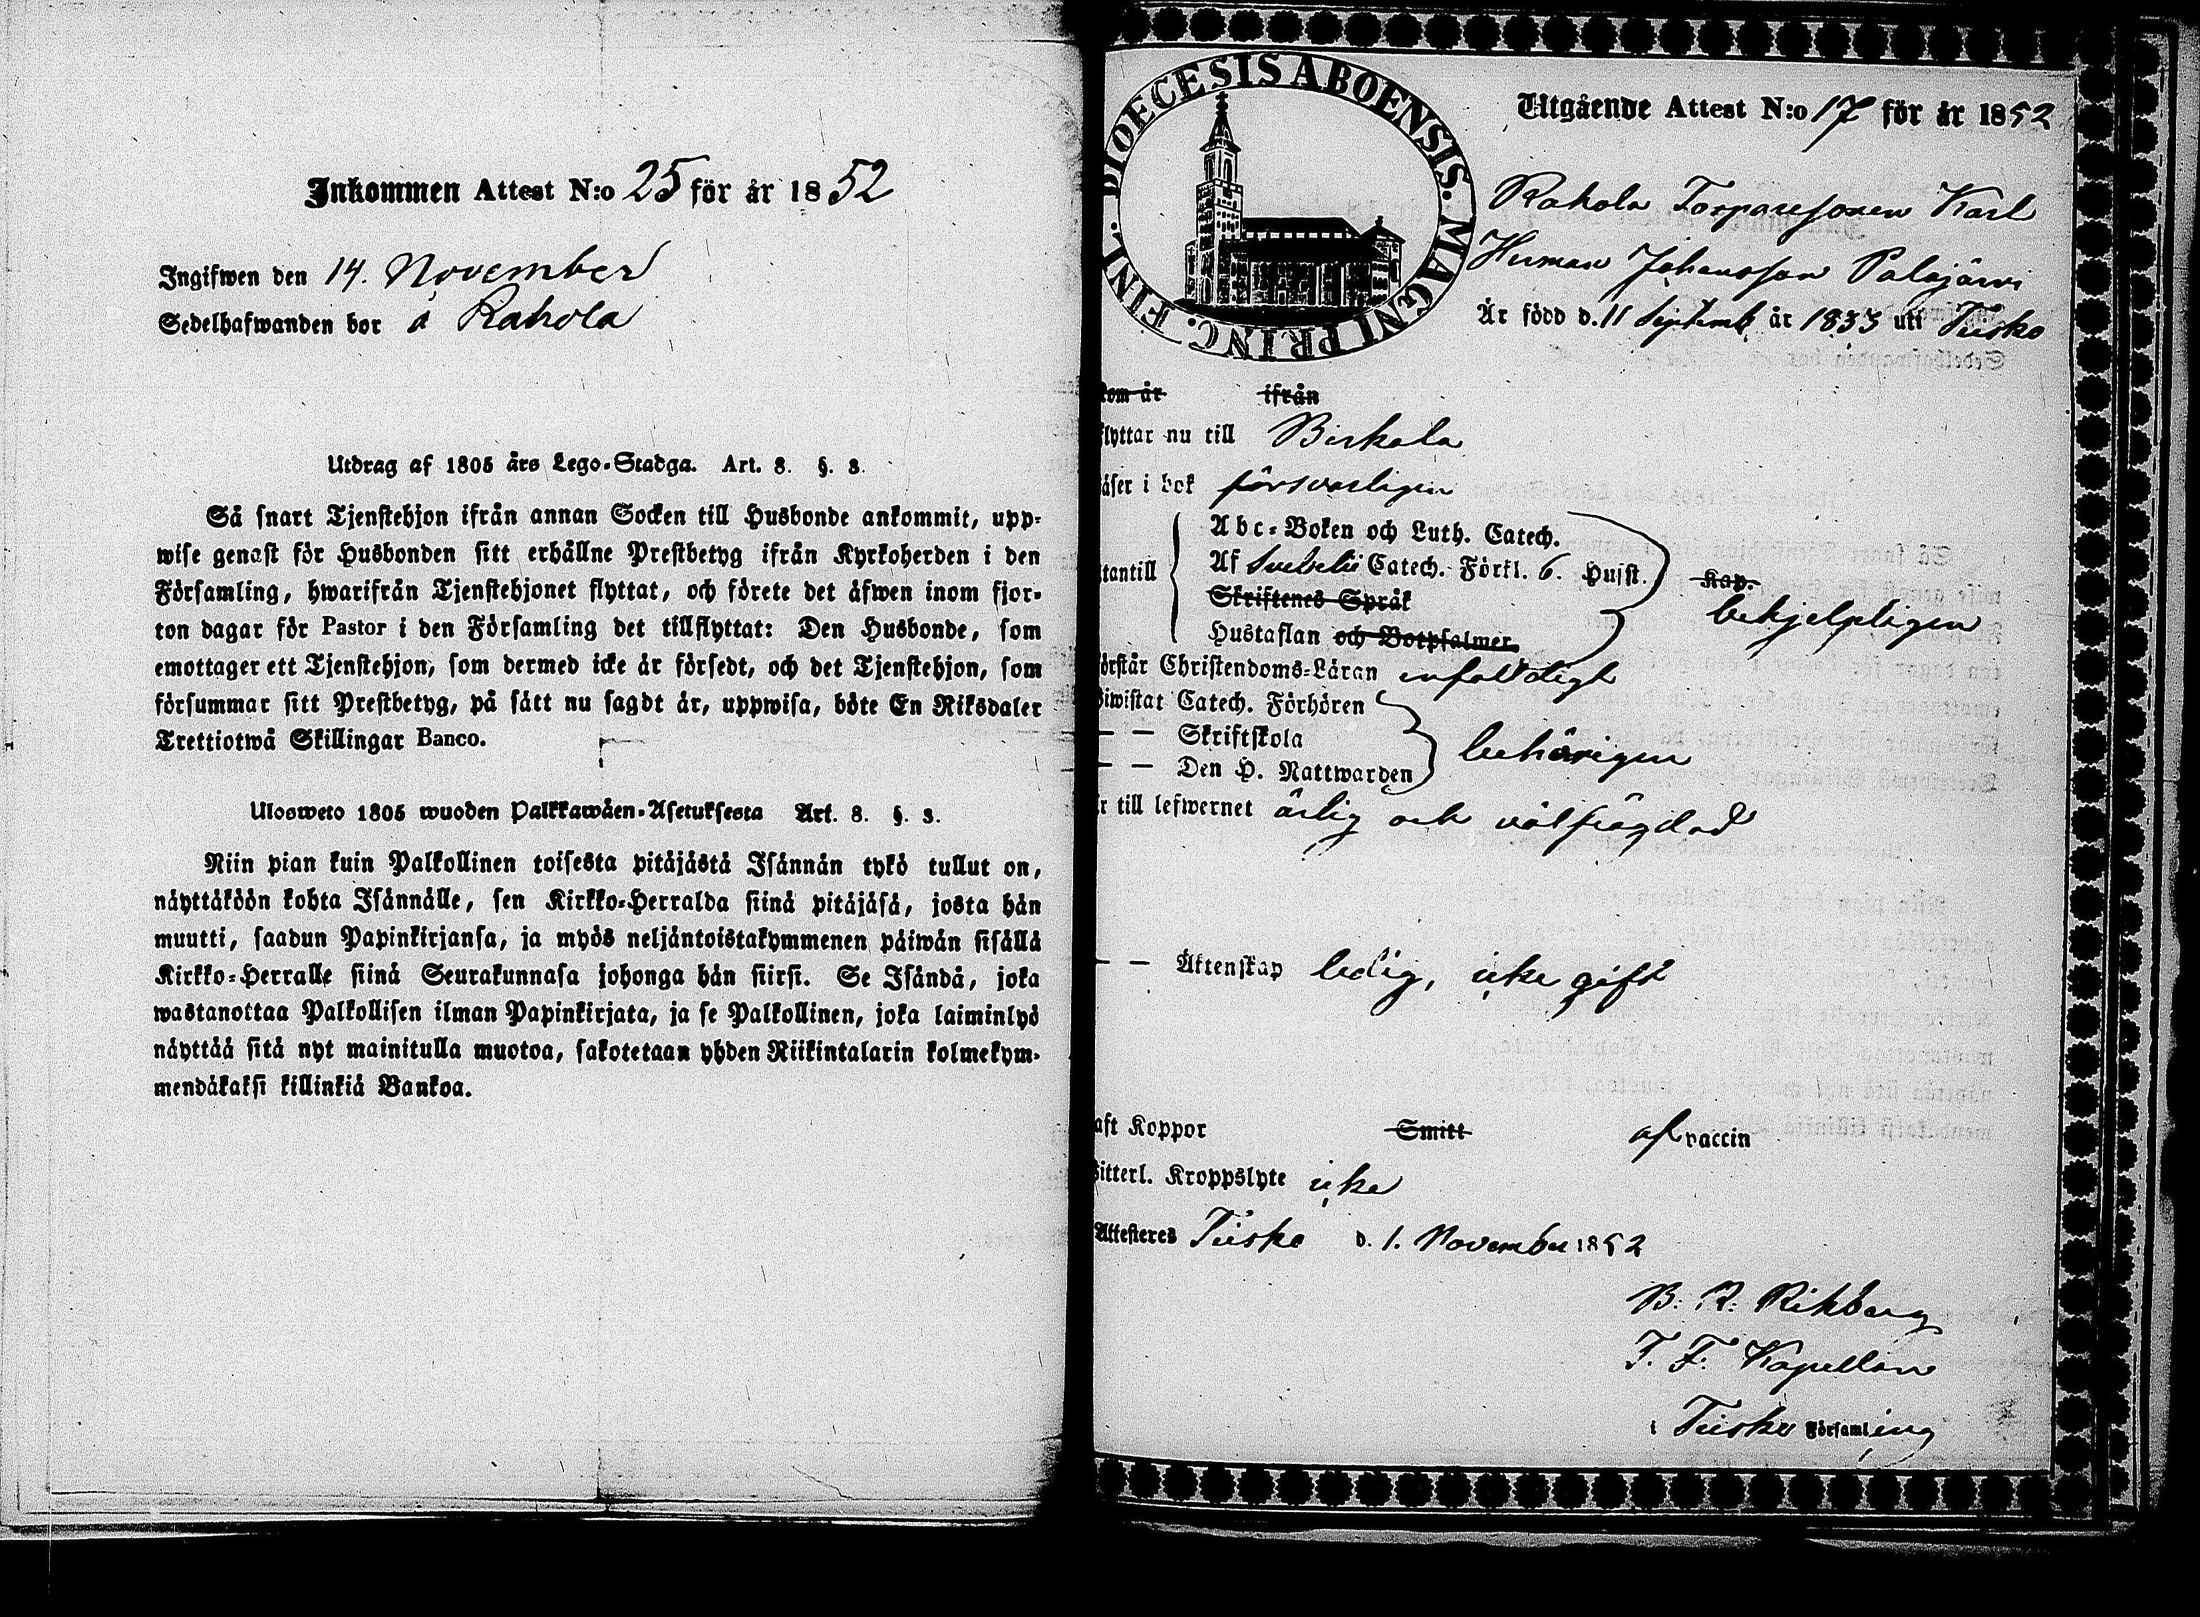 Inkommen Attest N:o 25 för år 1852
Ingifwen den 14. November
Sedelhafwanden bor å Rahola
Utdrag af 1805 års Lego-Stadga. Art. 8. §. 3.
Så snart Tjenstehjon ifrån annan Socken till Husbonde ankommit, upp-
wise genast för Husbonden sitt erhållne Prestbetyg ifrån Kyrkoherden i den
Församling, hwarifrån Tjenstehjonet flyttat, och förete det äfwen inom fjor-
ton dagar för Pastor i den Församling det tillflyttat: Den Husbonde, som
emottager ett Tjenstehjon, som dermed icke är försedt, och det Tjenstehjon, som
försummar sitt Prestbetyg, på sätt nu sagdt är, uppwisa, böte En Riksdaler
Trettiotwå Skillingar Banco.
Ulosweto 1805 wuoden Palkkawäen-Asetuksesta Art. 8. §. 3.
Niin pian kuin Palkollinen toisesta pitäjästä Isännän tykö tullut on,
näyttäköön kohta Isännälle, sen Kirkko-Herralda siinä pitäjäsä, josta hän
muutti, saadun Papinkirjansa, ja myös neljäntoistakymmenen päiwän sisällä
Kirkko-Herralle siinä Seurakunnasa johonga hän siirsi. Se Isändä, joka
wastanottaa Palkollisen ilman Papinkirjata, ja se Palkollinen, joka laiminlyö
näyttää sitä nyt mainitulla muotoa, sakotetaan yhden Riikintalarin kolmekym-
mendäkaksi killinkiä Bankoa.
DIOECESIS ABOENSIS. MAGNI PRINC. FINL.
Utgående Attest N:o 17 för år 1852
Rahola Torparesonen Karl
Herman Johansson Palojärvi
Är född d. 11 Septemb. år 1833 uti
kom år ifrån
flyttar nu till Birkala
läser i bok försvarligen
utantill
Abc-Boken och Luth. Catech.
Af Svebelii Catech. Förkl. 6. Hufst. Kap.
Skriftenes Språk
behjelpligen
Hustaflan och Botpsalmer.
förstår Christendoms-Läran enfaldigt
Biwistat Catech. Förhören
— — Skriftskola
behörigen
— — Den H. Nattwarden
är till lefwernet ärlig och välfrägdad
— — Äktenskap ledig, icke gift
haft Koppor Smitt af vaccin
Witterl. Kroppslyte icke
Attesteres d. 1. November 1852
B: R: Rikberg
T. F. Kapellan
i Församling